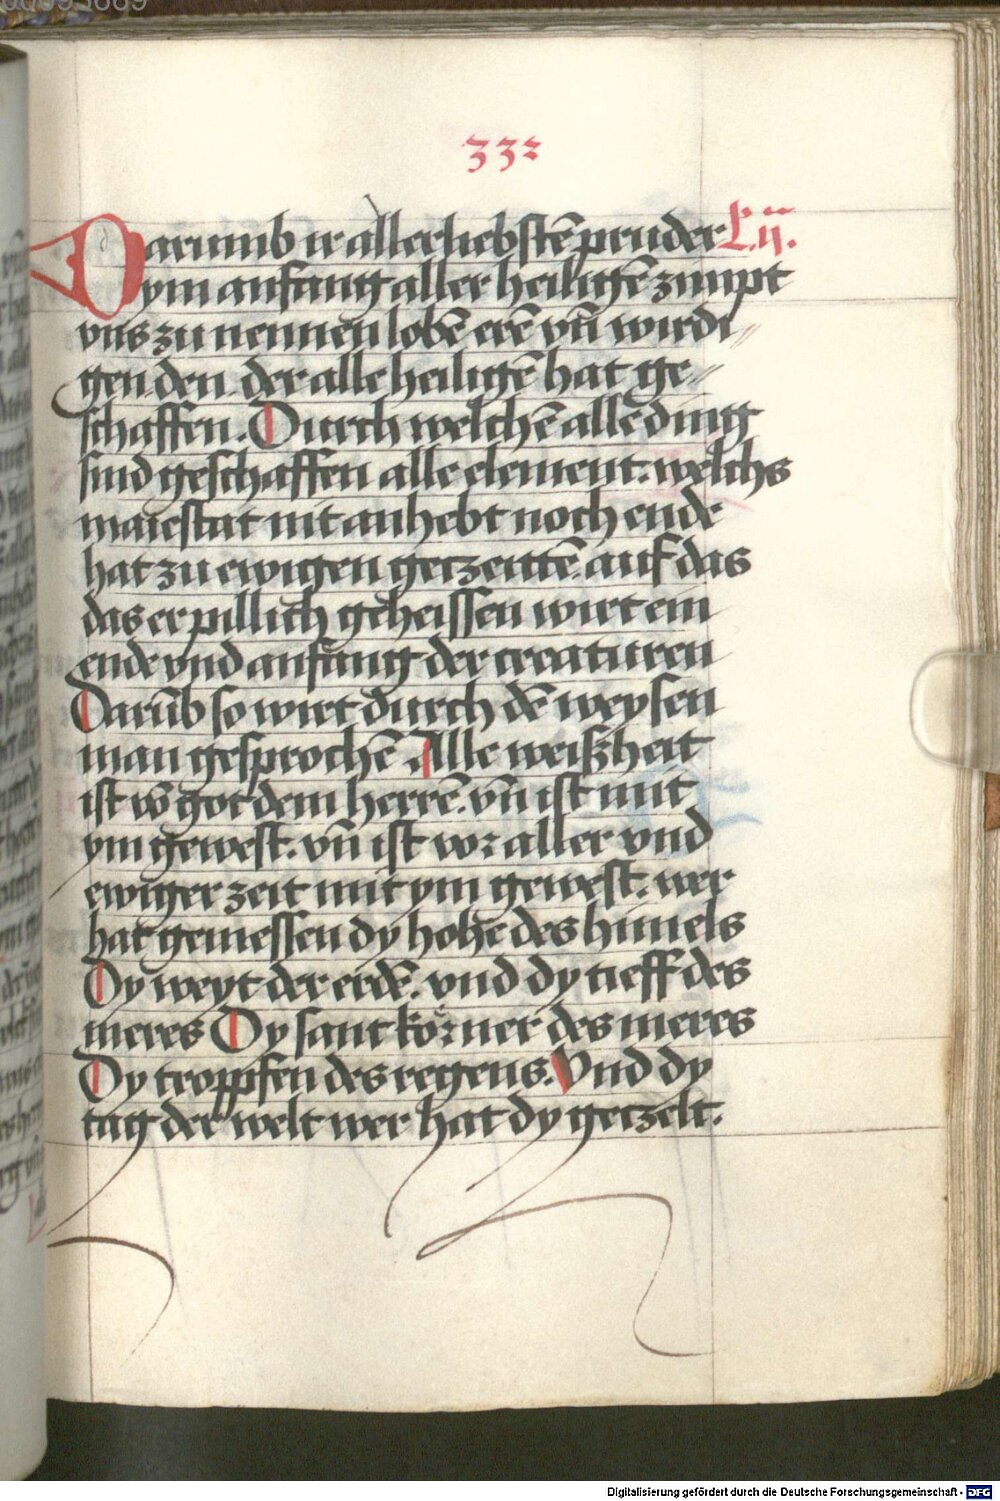 332
Darumb ir allerliebstē pruder L. ij.
ym anfang aller heiligē zimpt
vns zu nennen lobē erē vn̄ wirdi⸗
gen den der alle heiligē hat ge⸗
schaffen. Durch welchē alle ding
sind geschaffen alle element. welchs
maiestat nit anhebt noch ende
hat zu ewigen getzeitē. auf das
das er pillich geheissen wirt ein
ende vnd anfang der creaturen
Darūb so wirt durch dē weysen
man gesprochē Alle weißheit
ist vō got dem herrē. vn̄ ist mit
ym gewest. vn̄ ist vor aller vnd
ewiger zeit mit ym gewest. wer
hat gemessen dy hohe des himels
Dy weyt der erdē. vnd dy tieff des
meres Dy sant korner des meres
Dy troppfen des regens. Vnd dy
tag der welt wer hat dy getzelt.
Digitalisierung gefördert durch die Deutsche Forschungsgemeinschaft - DFG